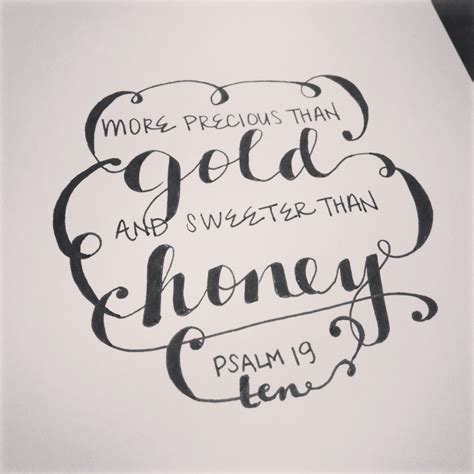 MORE PRECIOUS THAN
gold
AND SWEETER THAN
honey
PSALM 19
ten